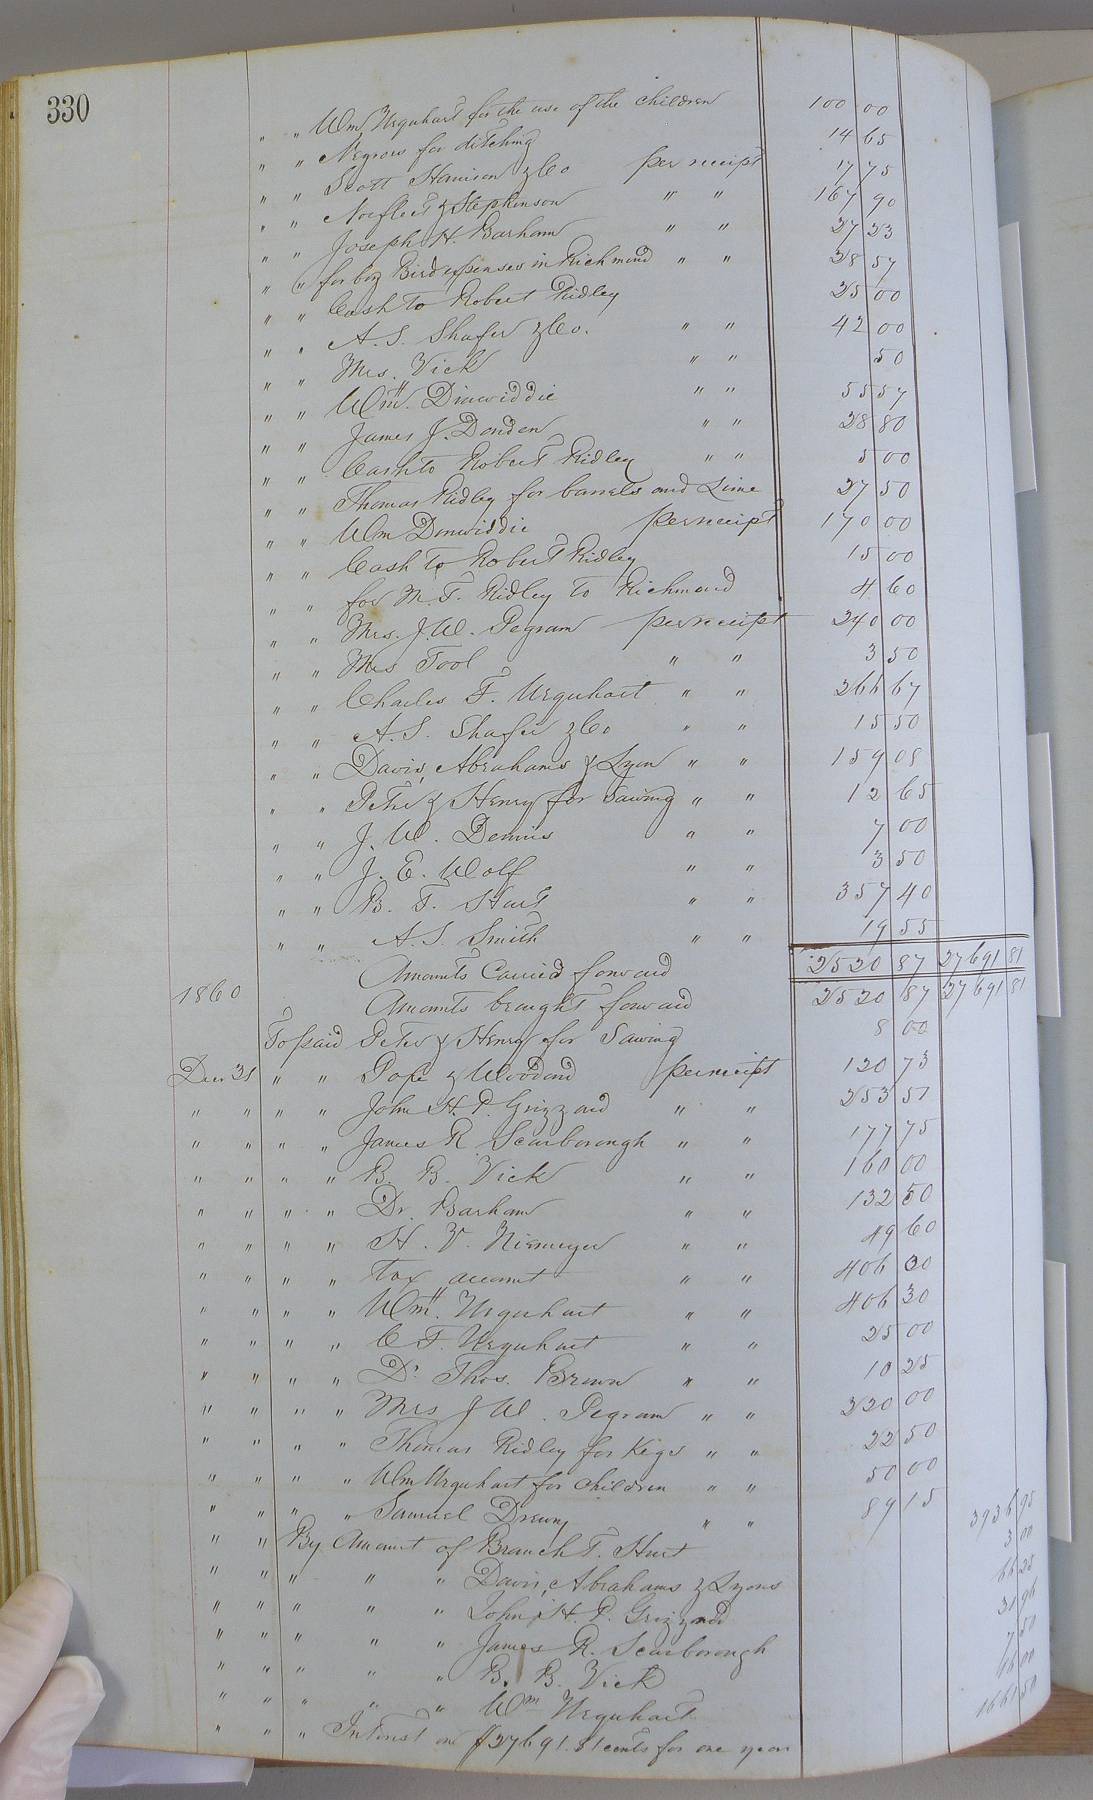 330
" " Wm Urquhart for the use of the children 100 00
" " Negroes for ditching 14 65
" " Scott Harrison & Co per receipt 17 75
" " Norfleet & Stephenson " " 167 90
" " Joseph H. Barham " " 27 23
" " for boy Bird expenses in Richmond " " 28 57
" " Cash to Robert Ridley 25 00
" " A. S. Shafer & Co. " " 42 00
" " Mrs. Vick " " 50
" " Wm. Dinwiddie " " 55 57
" " James J. Darden " " 28 80
" " Cash to Robert Ridley " " 5 00
" " Thomas Ridley for barrels and Lime 27 50
" " Wm Dinwiddie per receipt 170 00
" " Cash to Robert Ridley 15 00
" " for M. T. Ridley to Richmond 4 60
" " Mrs. J. W. Pegram per receipt 240 00
" " Mrs Tool " " 3 50
" " Charles F. Urquhart " " 266 67
" " A. S. Shafer & Co " " 15 50
" " Davis, Abrahams & Lyon " " 159 08
" " Peter & Henry for Sawing " " 12 65
" " J. W. Dennis " " 7 00
" " J. E. Wolf " " 3 50
" " B. T. Hurt " " 357 40
" " A. S. Smith " " 19 55
Amounts Carried forward 2520 87 27691 81
1860 Amounts brought forward 2520 87 27691 81
To paid Peter & Henry for Sawing 8 00
Decr 31 " " Pope & Woodard per receipt 120 73
" " " " John H. P. Grizzard " " 253 51
" " " " James R. Scarborough " " 177 75
" " " " B. B. Vick " " 160 00
" " " " Dr. Barham " " 132 50
" " " " H. V. Niemeyer " " 49 60
" " " " Tax account " " 406 30
" " " " Wm. Urquhart " " 406 30
" " " " C F. Urquhart " " 25 00
" " " " Dr Thos. Brown " " 10 25
" " " " Mrs J W. Pegram " " 320 00
" " " " Thomas Ridley for Kegs " " 22 50
" " " " Wm Urquhart for children " " 50 00
" " " " Samuel Drewry " " 89 15
" " By Amount of Branch T. Hurt 3936 95
" " " " " Davis, Abrahams & Lyons 3 00
" " " " " John H. P. Grizzard 66 25
" " " " " James R. Scarborough 31 96
" " " " " B. B. Vick 7 50
" " " " " Wm Urquhart 66 00
" " " Interest on $27691.81 cents for one year 1661 50